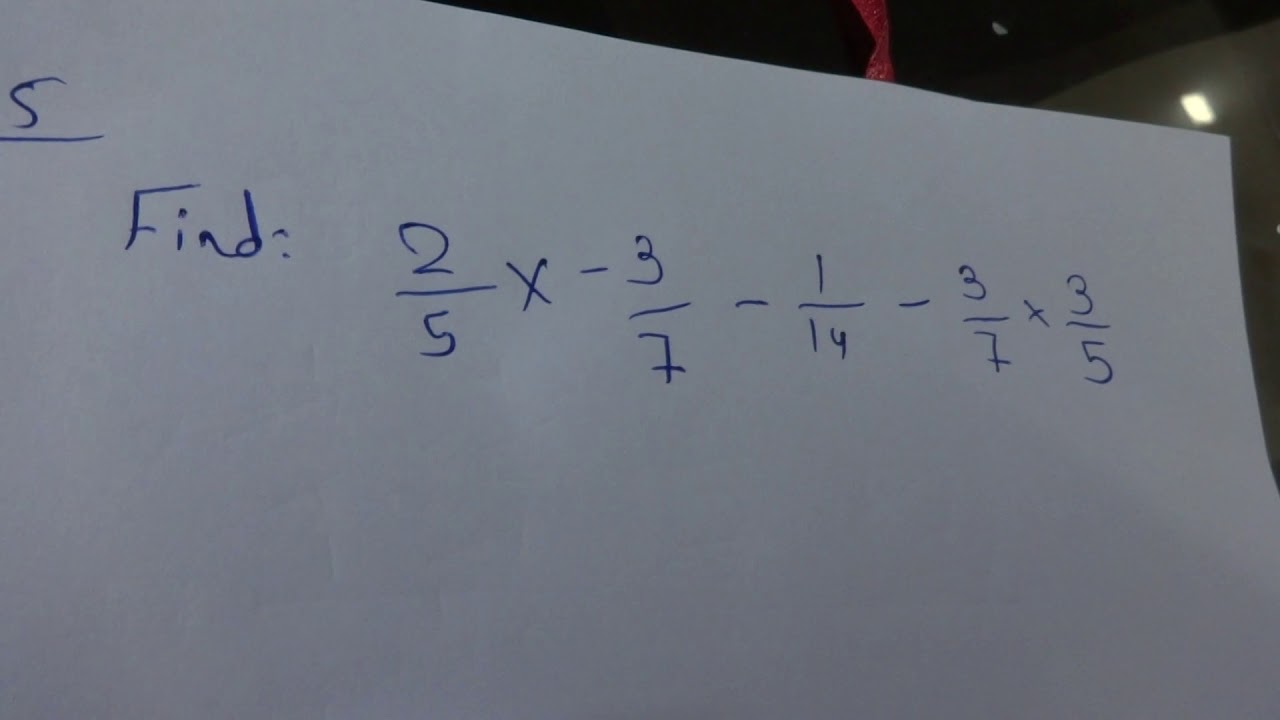 5
Find: 2/5 x -3/7 - 1/14 - 3/7 x 3/5